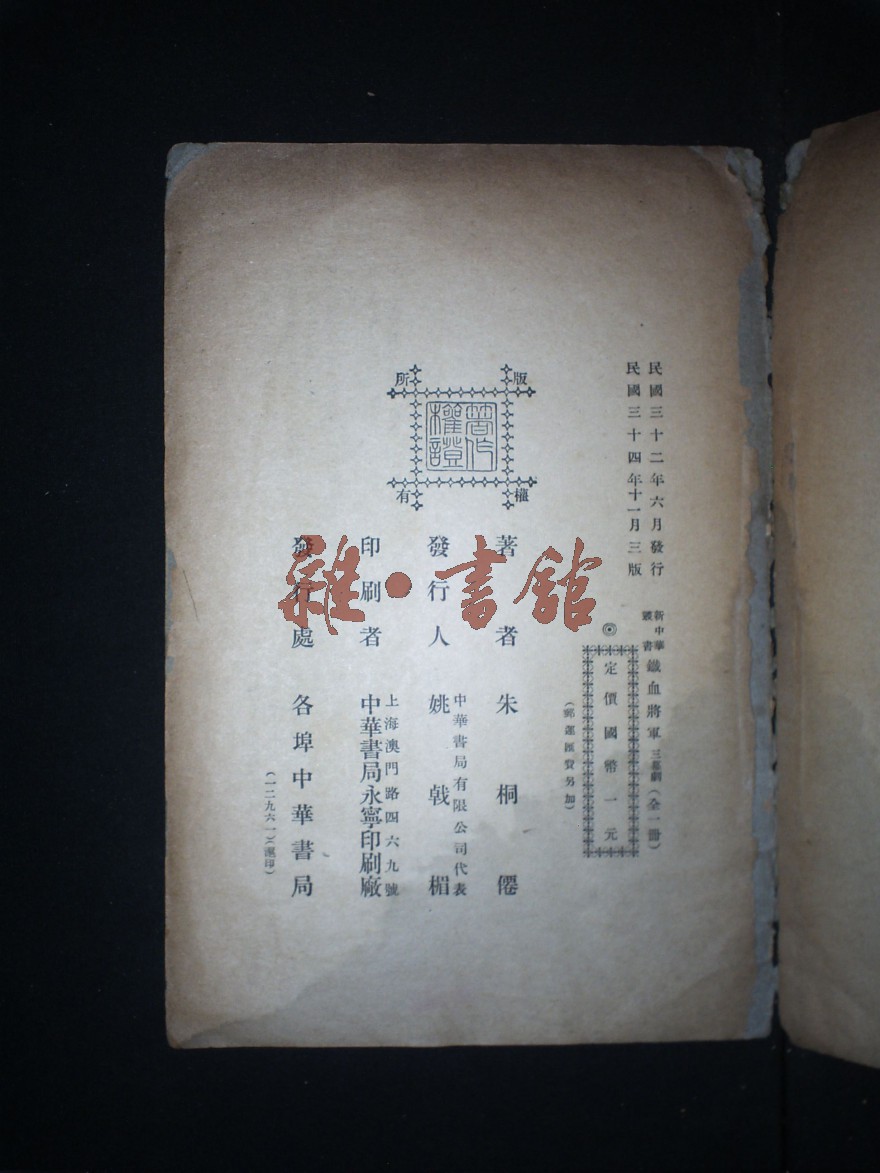 民國三十二年六月發行
民國三十四年十一月三版
新中華叢書 鐵血將軍 三幕劇(全一冊)
◎
定價國幣一元
(郵運匯費另加)
版權所有
著作權證
著者 朱桐僊
中華書局有限公司代表
發行人 姚戟楣
上海澳門路四六九號
印刷者 中華書局永寧印刷廠
發行處 各埠中華書局
(一二九六一)(滬印)
雜·書館